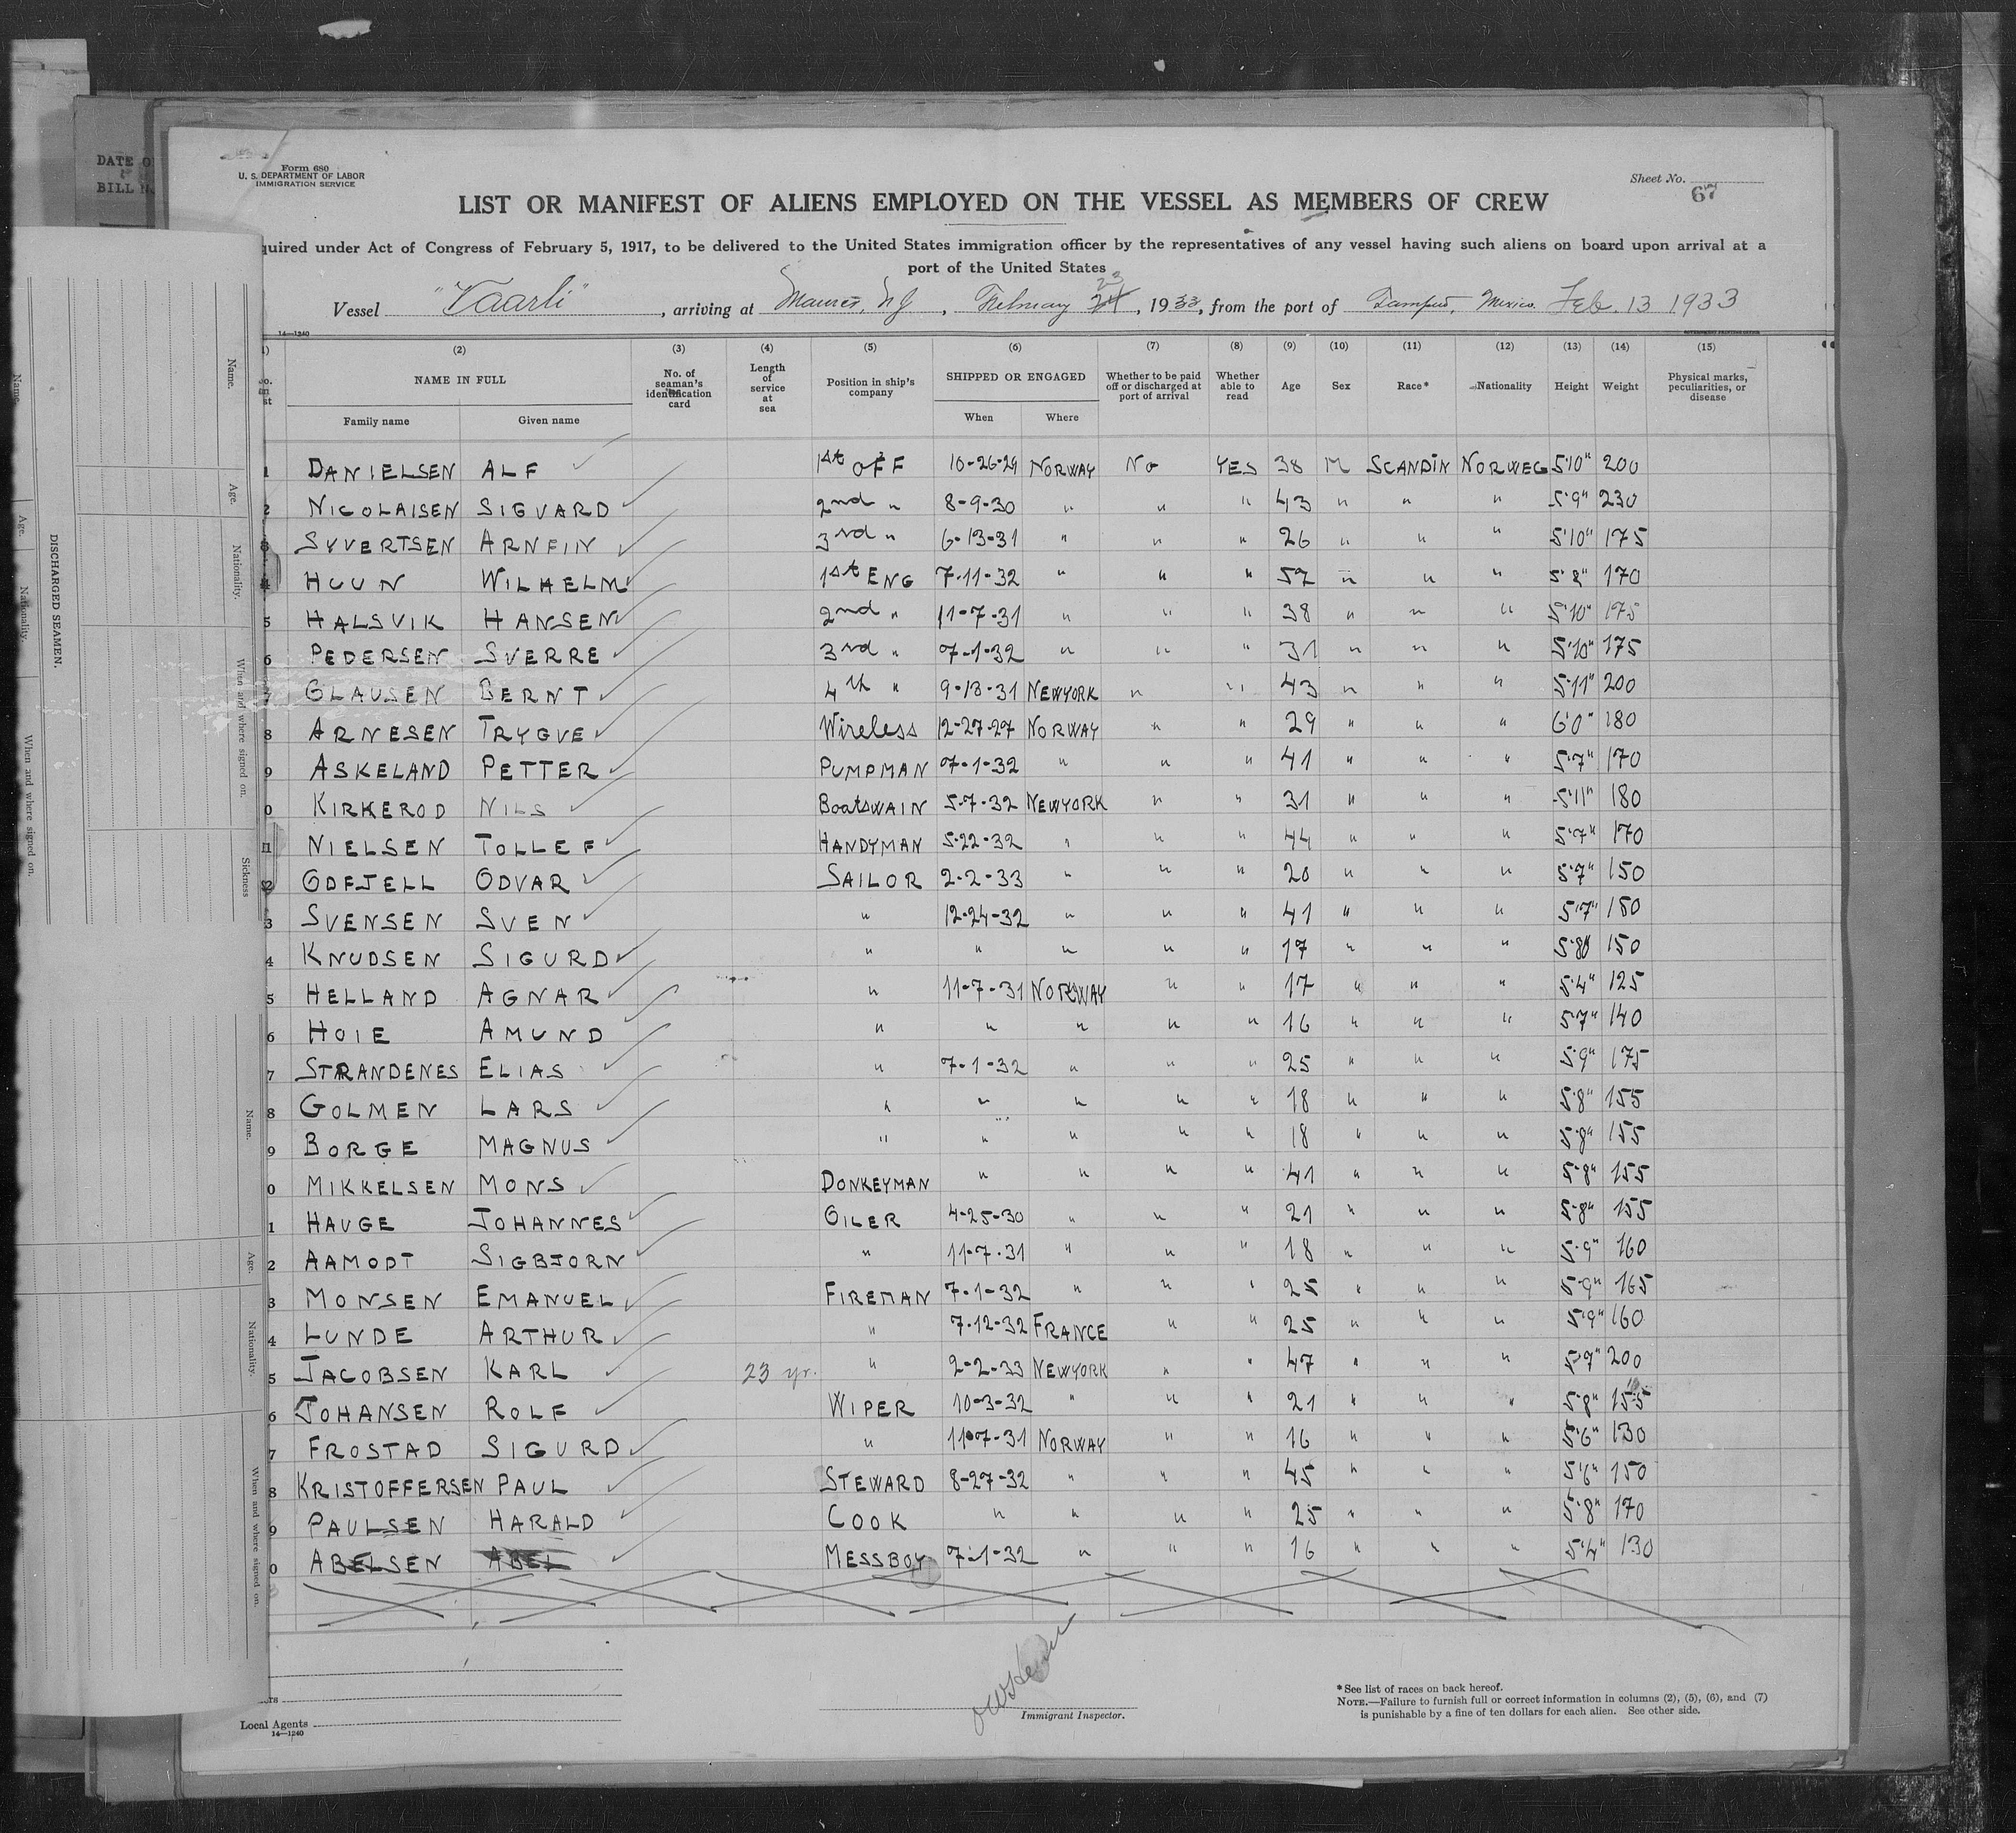 DATE O
BILL N
Form 680
U. S. DEPARTMENT OF LABOR
IMMIGRATION SERVICE
Sheet No.
67
LIST OR MANIFEST OF ALIENS EMPLOYED ON THE VESSEL AS MEMBERS OF CREW
quired under Act of Congress of February 5, 1917, to be delivered to the United States immigration officer by the representatives of any vessel having such aliens on board upon arrival at a
port of the United States
Vessel "Vaarli", arriving at Maurer, NJ, February 23, 1933, from the port of Tampico, Mexico. Feb. 13 1933
14—1240
(2) (3) (4) (5) (6) (7) (8) (9) (10) (11) (12) (13) (14) (15)
NAME IN FULL
Family name Given name
No. of seaman's identification card
Length of service at sea
Position in ship's company
SHIPPED OR ENGAGED
When Where
Whether to be paid off or discharged at port of arrival
Whether able to read
Age Sex Race* Nationality Height Weight
Physical marks, peculiarities, or disease
1 DANIELSEN ALF 1st OFF 10-26-29 NORWAY NO YES 38 M SCANDIN NORWEG 5'10" 200
2 NICOLAISEN SIGVARD 2nd " 8-9-30 " " " 43 " " " 5'9" 230
3 SYVERTSEN ARNFIN 3rd " 6-13-31 " " " 26 " " " 5'10" 175
4 HUUN WILHELM 1st ENG 7-11-32 " " " 57 " " " 5'8" 170
5 HALSVIK HANSEN 2nd " 11-7-31 " " " 38 " " " 5'10" 175
6 PEDERSEN SVERRE 3rd " 7-1-32 " " " 31 " " " 5'10" 175
7 CLAUSEN BERNT 4th " 9-13-31 NEWYORK " " 43 " " " 5'11" 200
8 ARNESEN TRYGVE Wireless 12-27-27 NORWAY " " 29 " " " 6'0" 180
9 ASKELAND PETTER PUMPMAN 7-1-32 " " " 41 " " " 5'7" 170
0 KIRKEROD NILS BoatSWAIN 5-7-32 NEWYORK " " 31 " " " 5'11" 180
11 NIELSEN TOLLEF HANDYMAN 5-22-32 " " " 44 " " " 5'7" 170
2 ODFJELL ODVAR SAILOR 2-2-33 " " " 20 " " " 5'7" 150
3 SVENSEN SVEN " 12-24-32 " " " 41 " " " 5'7" 180
4 KNUDSEN SIGURD " " " " " 17 " " " 5'8" 150
5 HELLAND AGNAR " 11-7-31 NORWAY " " 17 " " " 5'4" 125
6 HOIE AMUND " " " " " 16 " " " 5'7" 140
7 STRANDENES ELIAS " 7-1-32 " " " 25 " " " 5'9" 175
8 GOLMEN LARS " " " " " 18 " " " 5'8" 155
9 BORGE MAGNUS " " " " " 18 " " " 5'8" 155
0 MIKKELSEN MONS DONKEYMAN " " " " 41 " " " 5'8" 155
1 HAUGE JOHANNES OILER 4-25-30 " " " 21 " " " 5'8" 155
2 AAMODT SIGBJORN " 11-7-31 " " " 18 " " " 5'9" 160
3 MONSEN EMANUEL FIREMAN 7-1-32 " " " 25 " " " 5'9" 165
4 LUNDE ARTHUR " 7-12-32 FRANCE " " 25 " " " 5'9" 160
5 JACOBSEN KARL 23 yr. " 2-2-33 NEWYORK " " 47 " " " 5'9" 200
6 JOHANSEN ROLF WIPER 10-3-32 " " " 21 " " " 5'8" 155
7 FROSTAD SIGURD " 11-7-31 NORWAY " " 16 " " " 5'6" 130
8 KRISTOFFERSEN PAUL STEWARD 8-27-32 " " " 45 " " " 5'6" 150
9 PAULSEN HARALD COOK " " " " 25 " " " 5'8" 170
0 ABELSEN ABEL MESSBOY 7-1-32 " " " 16 " " " 5'4" 130
Immigrant Inspector.
Local Agents
14—1240
*See list of races on back hereof.
NOTE.—Failure to furnish full or correct information in columns (2), (5), (6), and (7)
is punishable by a fine of ten dollars for each alien. See other side.
DISCHARGED SEAMEN.
Name.
Age.
Nationality.
When and where signed on.
Name.
Age.
Nationality.
When and where signed on.
Sickness
Name.
Age.
Nationality.
When and where signed on.